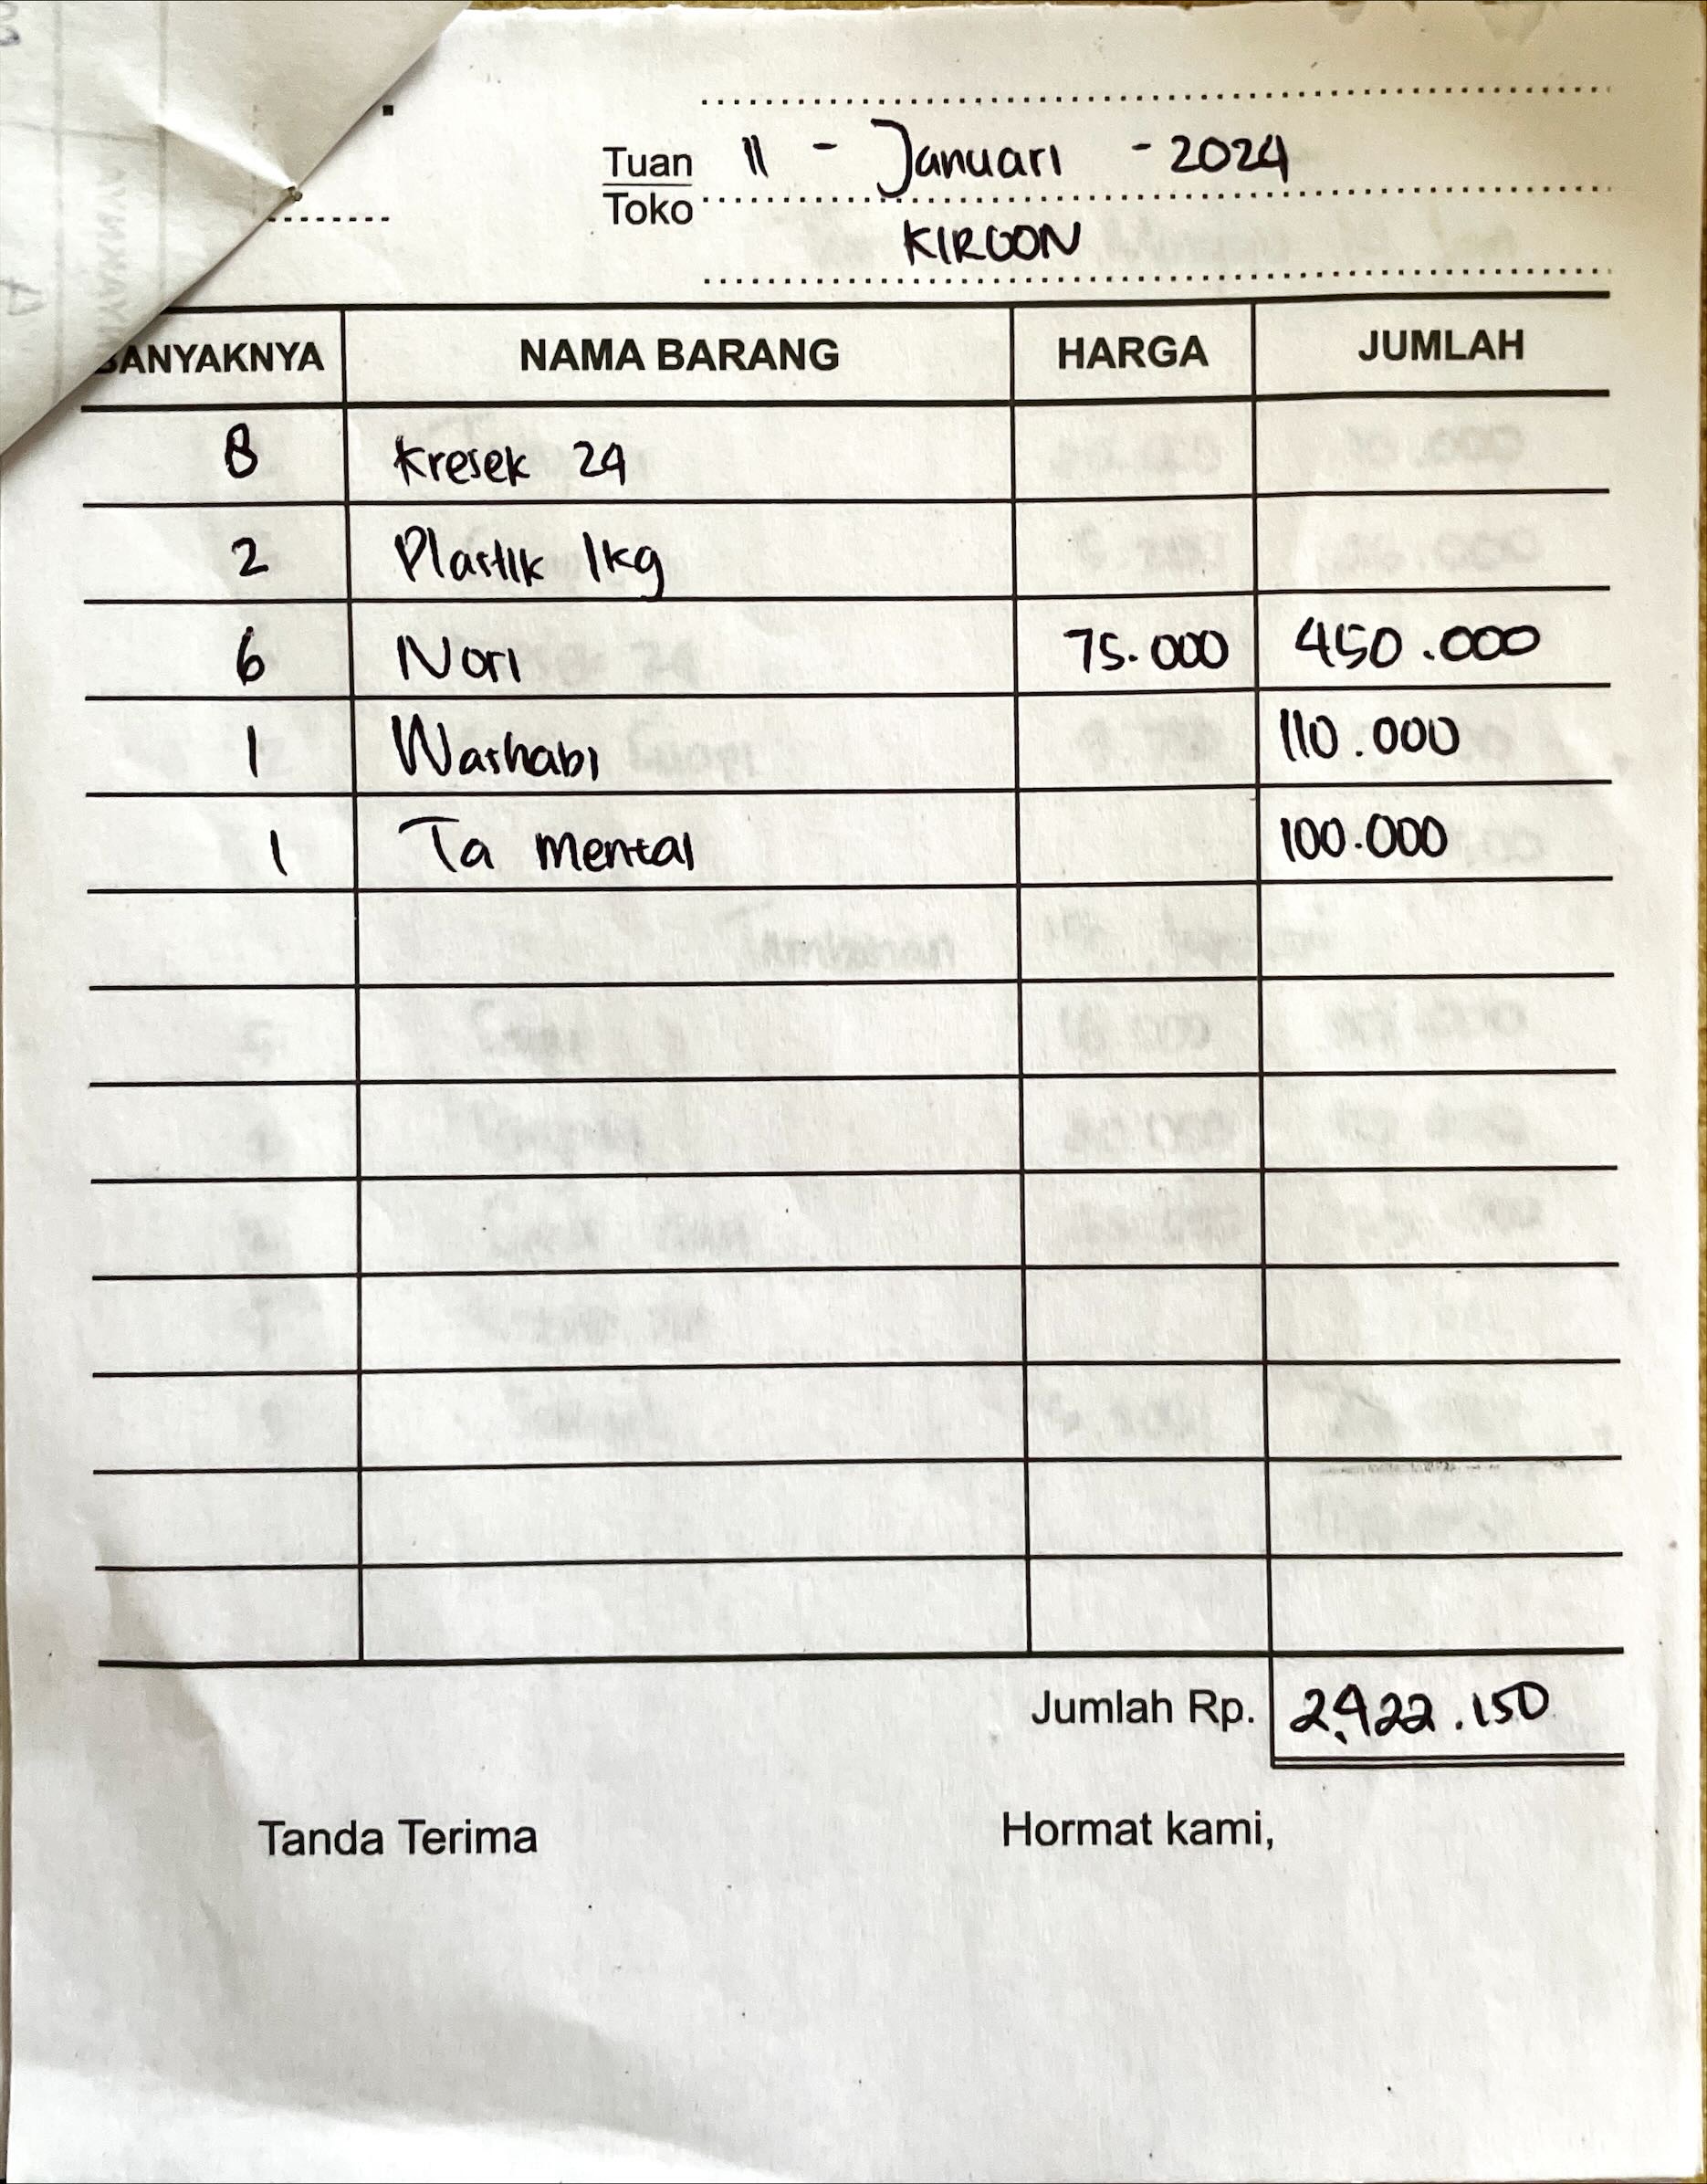 Tuan 11 - Januari - 2024
Toko
KIROON
BANYAKNYA NAMA BARANG HARGA JUMLAH
8 Kresek 24
2 Plastik 1kg
6 Nori 75.000 450.000
1 Washabi 110.000
1 Ta mental 100.000
Jumlah Rp. 2.422.150
Tanda Terima Hormat kami,